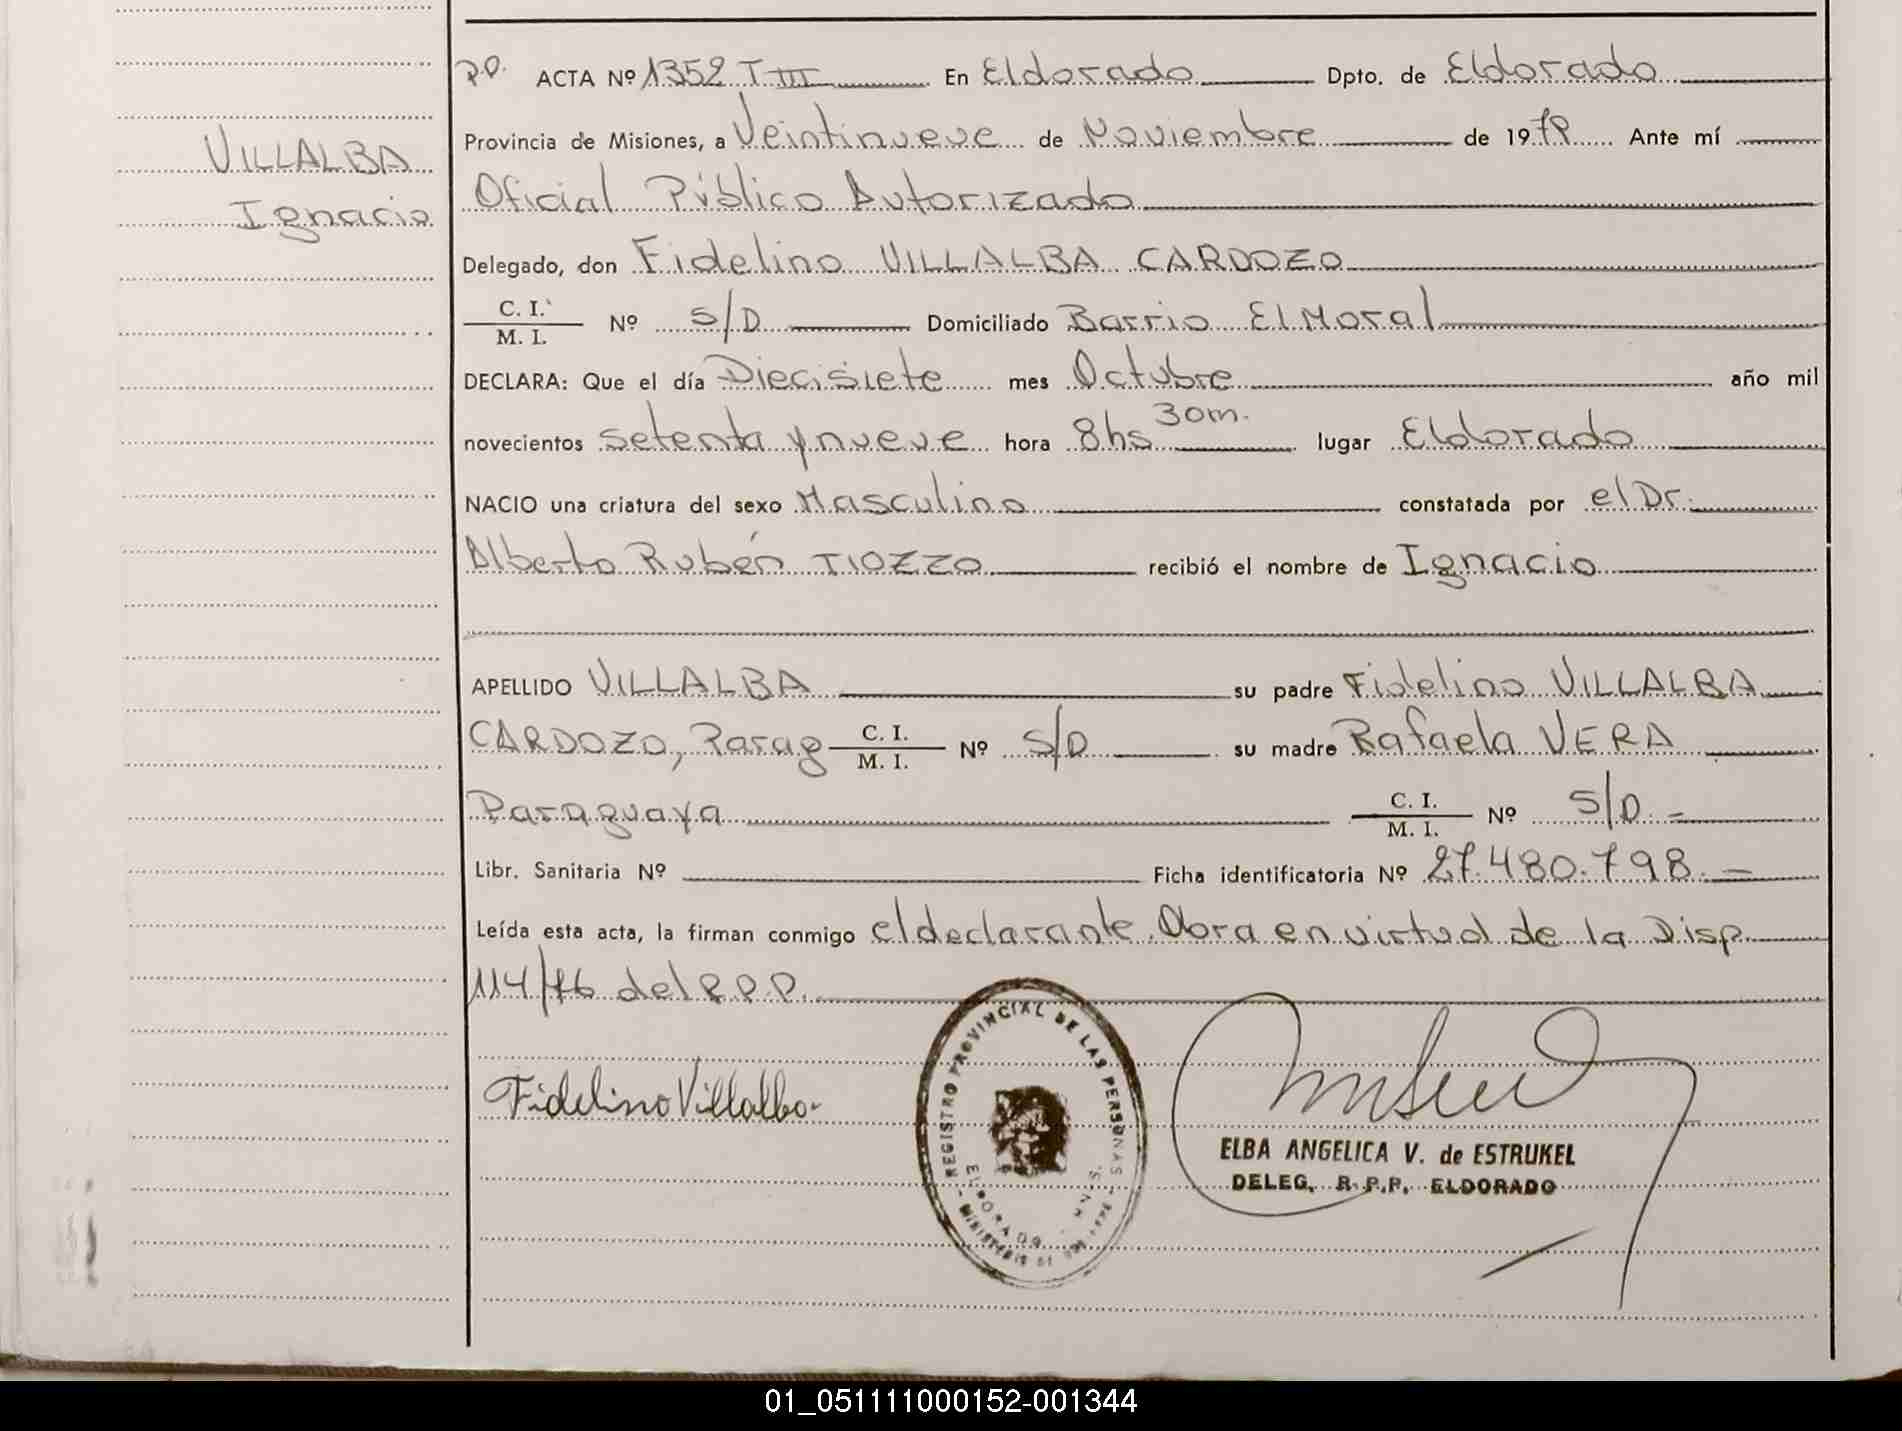 P.D. ACTA Nº 1352 T III En Eldorado Dpto. de Eldorado
Provincia de Misiones, a Veintinueve de Noviembre de 1979 Ante mí
VILLALBA
Ignacio
Oficial Público Autorizado
Delegado, don Fidelino VILLALBA CARDOZO
C. I. / M. I. Nº S/D Domiciliado Barrio El Moral
DECLARA: Que el día Diecisiete mes Octubre año mil
novecientos setenta y nueve hora 8hs 30m. lugar Eldorado
NACIO una criatura del sexo Masculino constatada por el Dr.
Alberto Rubén TIOZZO recibió el nombre de Ignacio
APELLIDO VILLALBA su padre Fidelino VILLALBA
CARDOZO, Parag C. I. / M. I. Nº S/D su madre Rafaela VERA
Paraguaya C. I. / M. I. Nº S/D.-
Libr. Sanitaria Nº Ficha identificatoria Nº 27.480.798.-
Leída esta acta, la firman conmigo el declarante. Obra en virtud de la Disp.
114/76 del R.P.P.
REGISTRO PROVINCIAL DE LAS PERSONAS
MINISTERIO DE
ELDORADO
Fidelino Villalba
ELBA ANGELICA V. de ESTRUKEL
DELEG. R.P.P. ELDORADO
01_051111000152-001344